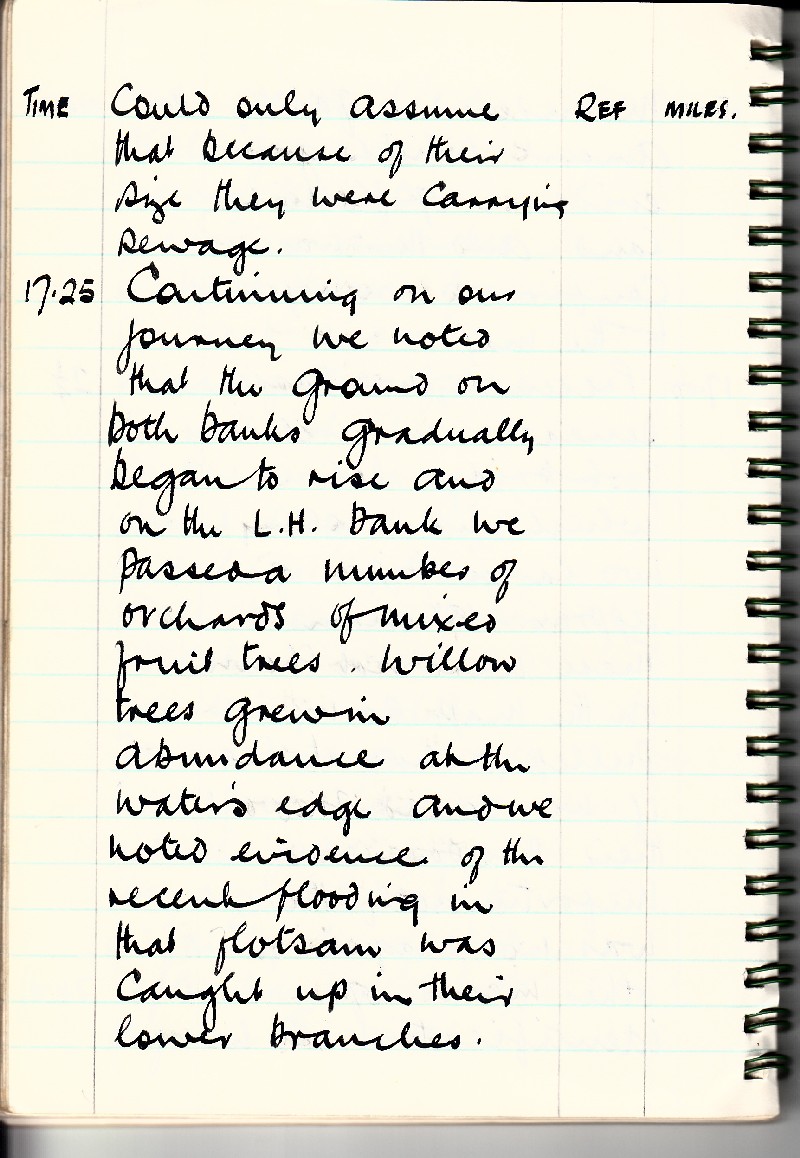 TIME Could only assume REF MILES.
that because of their
size they were carrying
sewage.
17.25 Continuing on our
journey we noted
that the ground on
both banks gradually
began to rise and
on the L.H. bank we
passed a number of
orchards of mixed
fruit trees. Willow
trees grew in
abundance at the
water's edge and we
noted evidence of the
recent flooding in
that flotsam was
caught up in their
lower branches.